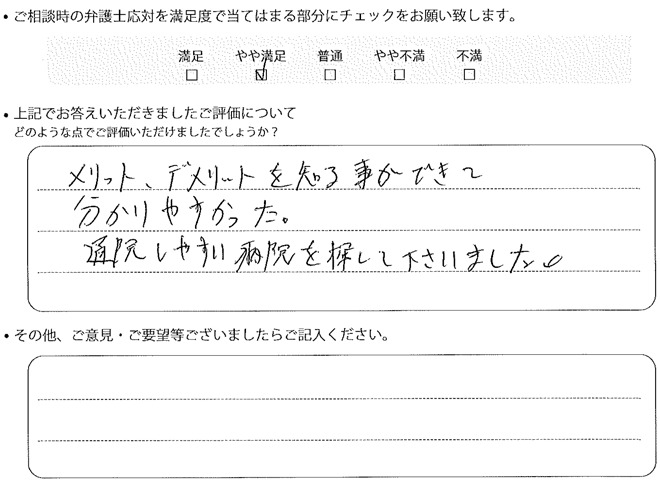 ・ご相談時の弁護士応対を満足度で当てはまる部分にチェックをお願い致します。
満足 やや満足 普通 やや不満 不満
□ ☑ □ □ □
・上記でお答えいただきましたご評価について
どのような点でご評価いただけましたでしょうか？
メリット、デメリットを知る事ができて
分かりやすかった。
通院しやすい病院を探して下さいました。
・その他、ご意見・ご要望等ございましたらご記入ください。